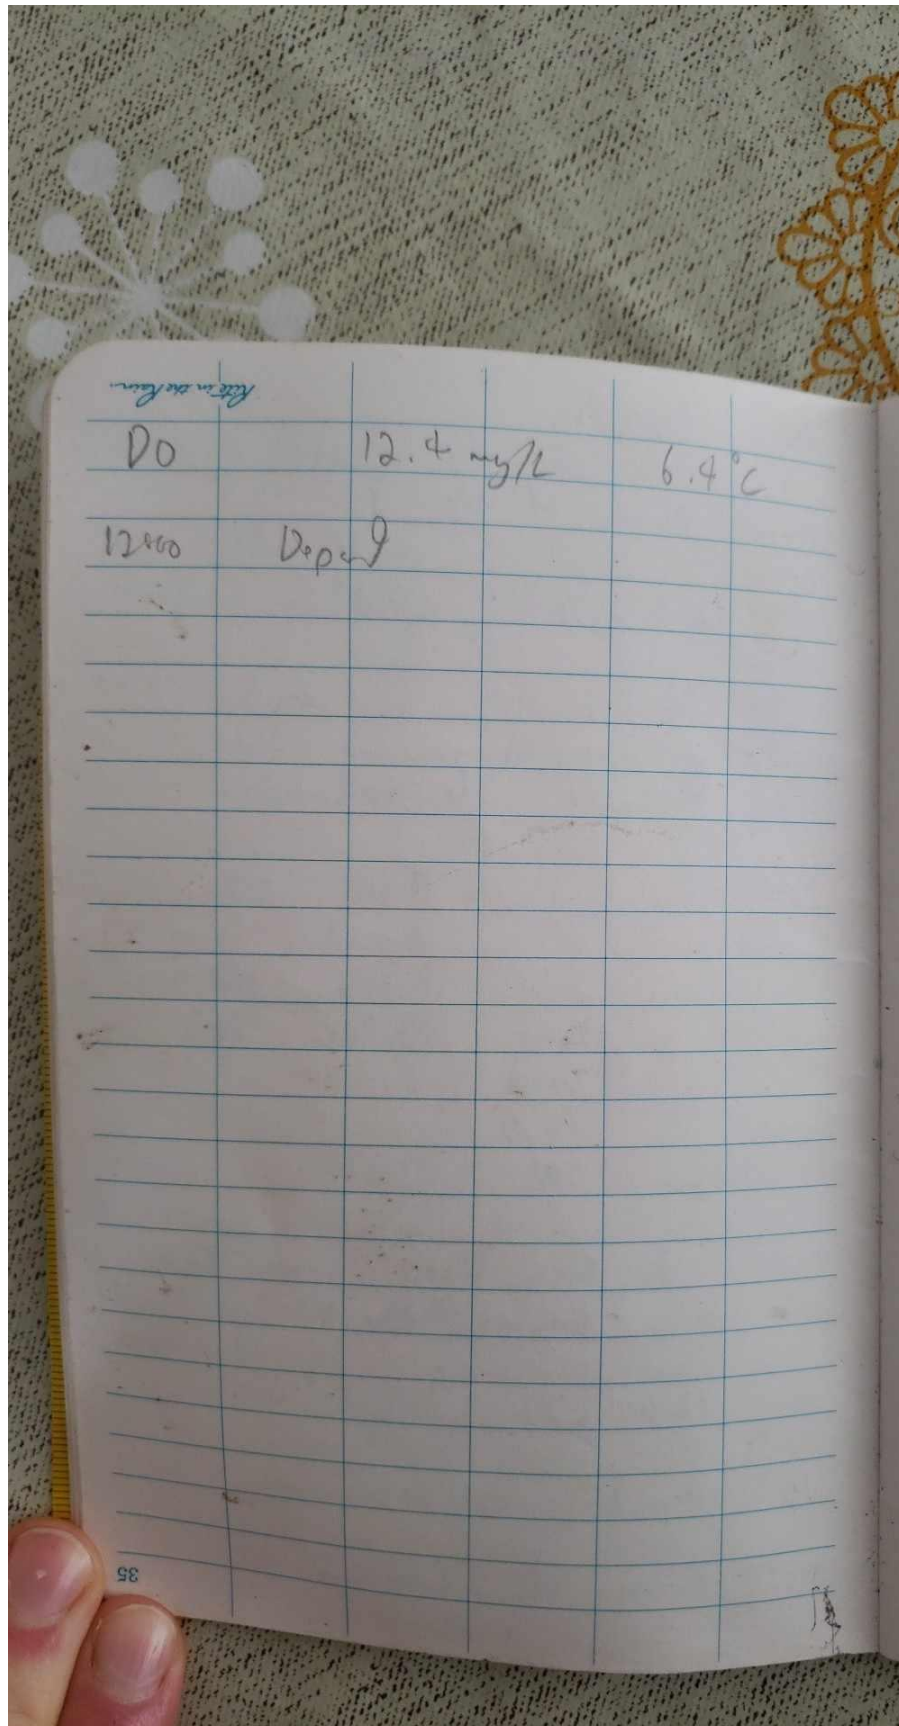 Rite in the Rain
DO 12.4 mg/L 6.4°C
Depart
35